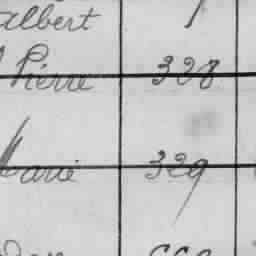 albert
Pierre 328
Marie 329